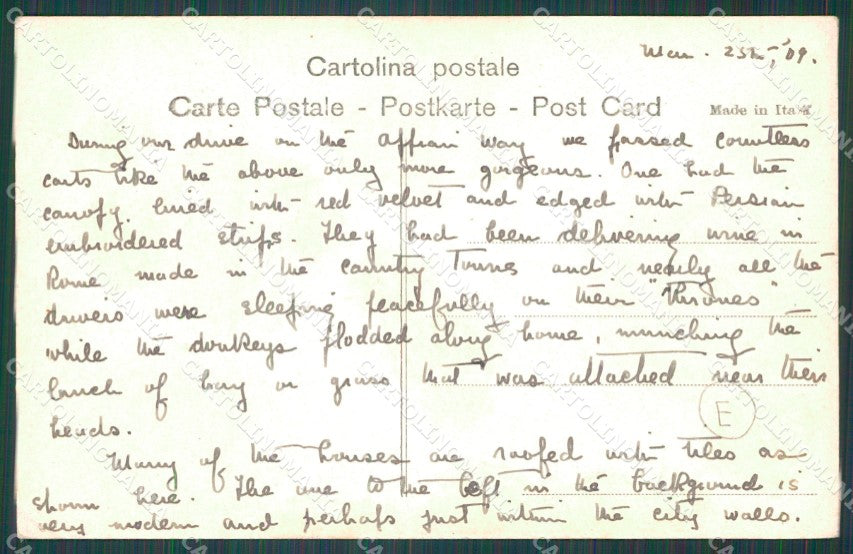 Mar. 25th, '09.
Cartolina postale
Carte Postale - Postkarte - Post Card
Made in Italy
During our drive on the Appian Way we passed countless
carts like the above only more gorgeous. One had the
canopy lined with red velvet and edged with Persian
embroidered strips. They had been delivering wine in
Rome made in the country towns and nearly all the
drivers were sleeping peacefully on their "thrones"
while the donkeys plodded along home, munching the
bunch of hay or grass that was attached near their
heads.
E
Many of the houses are roofed with tiles as
shown here. The one to the left in the background is
very modern and perhaps just within the city walls.
CARTOLINOMANIA